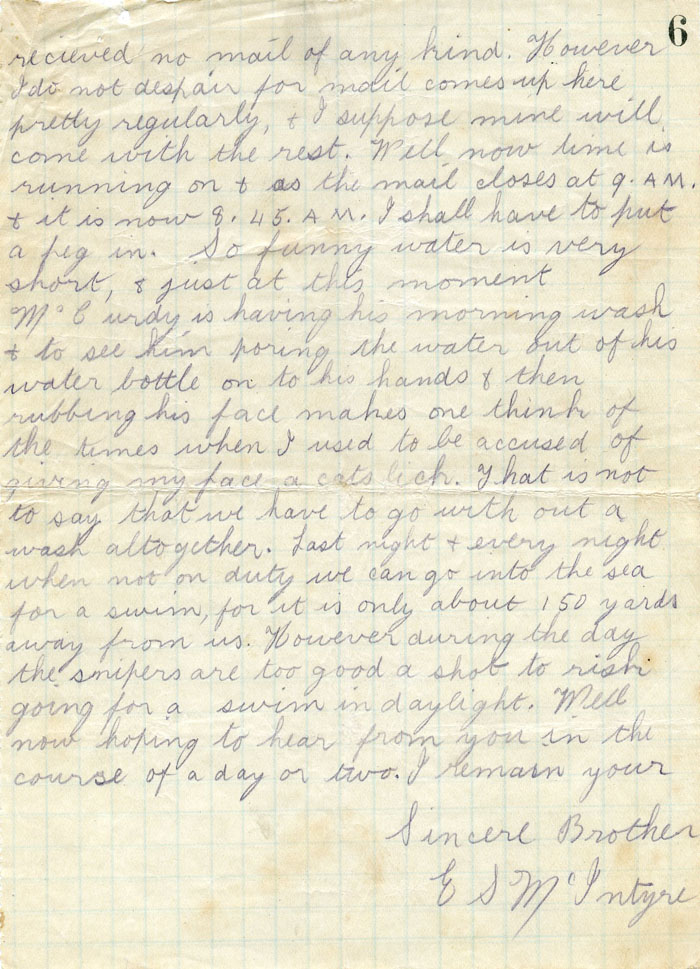 6
recieved no mail of any kind. However
I do not despair for mail comes up here
pretty regularly, & I suppose mine will
come with the rest. Well now time is
running on & as the mail closes at 9. A M.
& it is now 8. 45. A M. I shall have to put
a peg in. So funny water is very
short, & just at this moment
McCurdy is having his morning wash
& to see him poring the water out of his
water bottle on to his hands & then
rubbing his face makes one think of
the times when I used to be accused of
giving my face a cats lick. That is not
to say that we have to go with out a
wash altogether. Last night & every night
when not on duty we can go into the sea
for a swim, for it is only about 150 yards
away from us. However during the day
the snipers are too good a shot to risk
going for a swim in daylight. Well
now hoping to hear from you in the
course of a day or two. I remain your
Sincere Brother
E S McIntyre